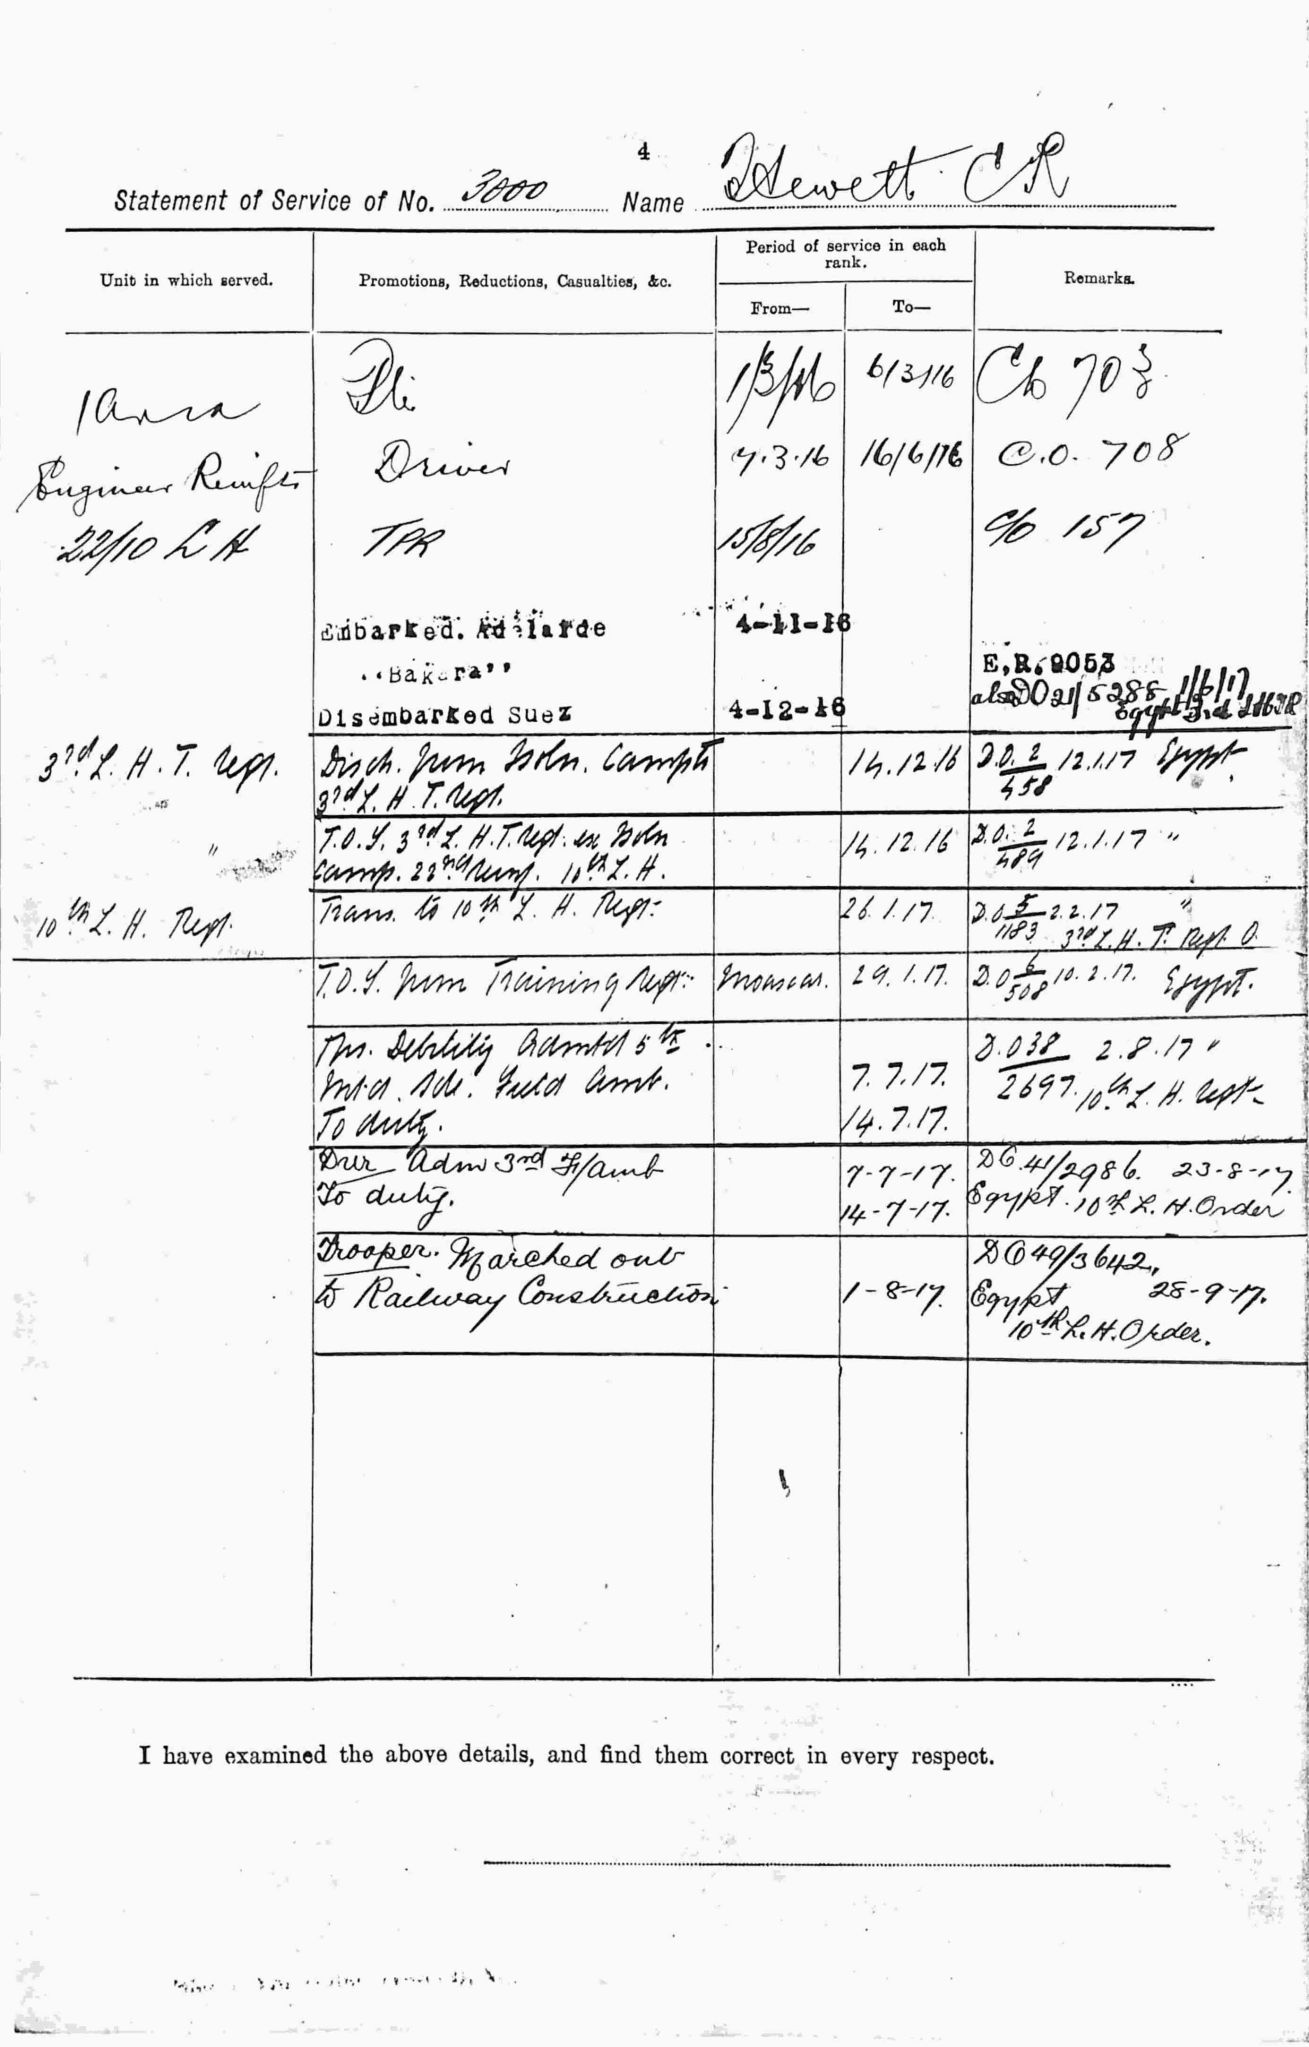 4
Statement of Service of No. 3000 Name Hewett C R
Unit in which served.
Promotions, Reductions, Casualties, &c.
Period of service in each rank.
From—
To—
Remarks.
Pte 1/3/16 6/3/16 Co 703
Engineer Reinfts Driver 7.3.16 16/6/16 C.O. 708
22/10 L H TPR 15/8/16 c/o 157
Embarked. Adelaide 4-11-16
"Bakara" E.R. 9053
also DO 21/5288 1/6/17
Disembarked Suez 4-12-16 Egypt 3rd LHTR
3rd L. H. T. Regt. Disch. from Isoln. Camp to 14.12.16 D.O. 2/458 12.1.17 Egypt
3rd L. H. T. Regt.
" T.O.S. 3rd L. H. T. Regt. ex Isoln 14.12.16 D.O. 2/489 12.1.17 "
Camp. 22nd Reinf. 10th L. H.
10th L. H. Regt. Trans. to 10th L. H. Regt. 26.1.17. D.O. 5/1183 2.2.17 "
3rd L. H. T. Regt. O.
T.O.S. from Training Regt. Moascar. 29.1.17. D.O. 6/508 10.2.17. Egypt.
Tpr. Debility Admtd 5th D.O 38/2697 2.8.17 "
Mtd. Bde. Field Amb. 7.7.17. 10th L. H. Regt.
To duty. 14.7.17.
Dvr Adm 3rd F/Amb 7-7-17. DO 41/2986. 23-8-17.
To duty. 14-7-17. Egypt. 10th L. H. Order
Trooper. Marched out DO 49/3642.
to Railway Construction 1-8-17. Egypt 28-9-17.
10th L. H. Order.
I have examined the above details, and find them correct in every respect.